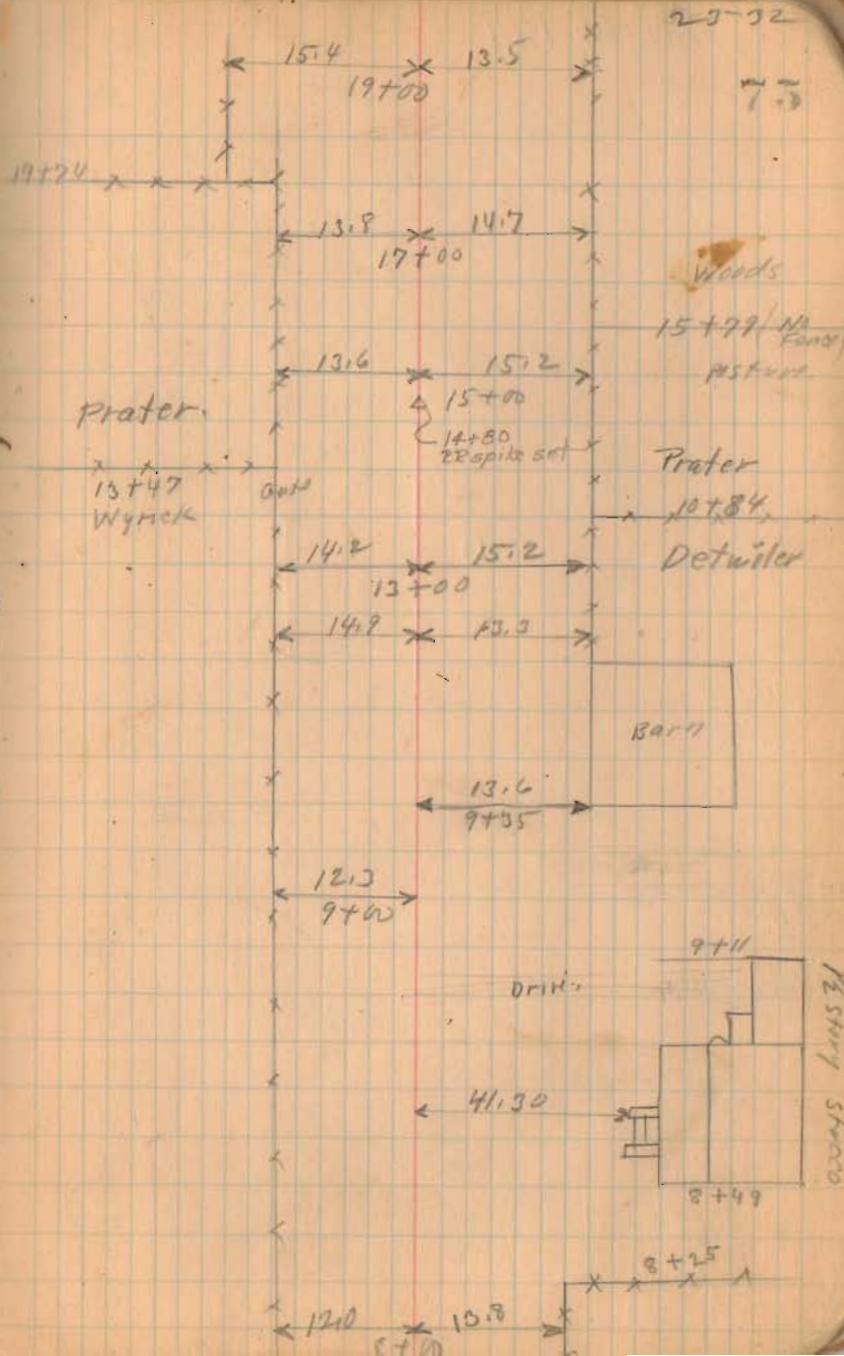 23-32
7.5
15.4 13.5
19+00
19+74
13.8 14.7
17+00
Woods
15+79 No Fence
pasture
13.6 15.2
15+00
14+80
RR spike set
Prater.
13+47
Wyrick
Prater
10+84
Detwiler
14.2 15.2
13+00
14.9 13.3
Barn
13.6
9+35
12.3
9+00
9+11
Drive
41.30
1½ story stucco
8+49
8+25
12.0 13.8
8+00